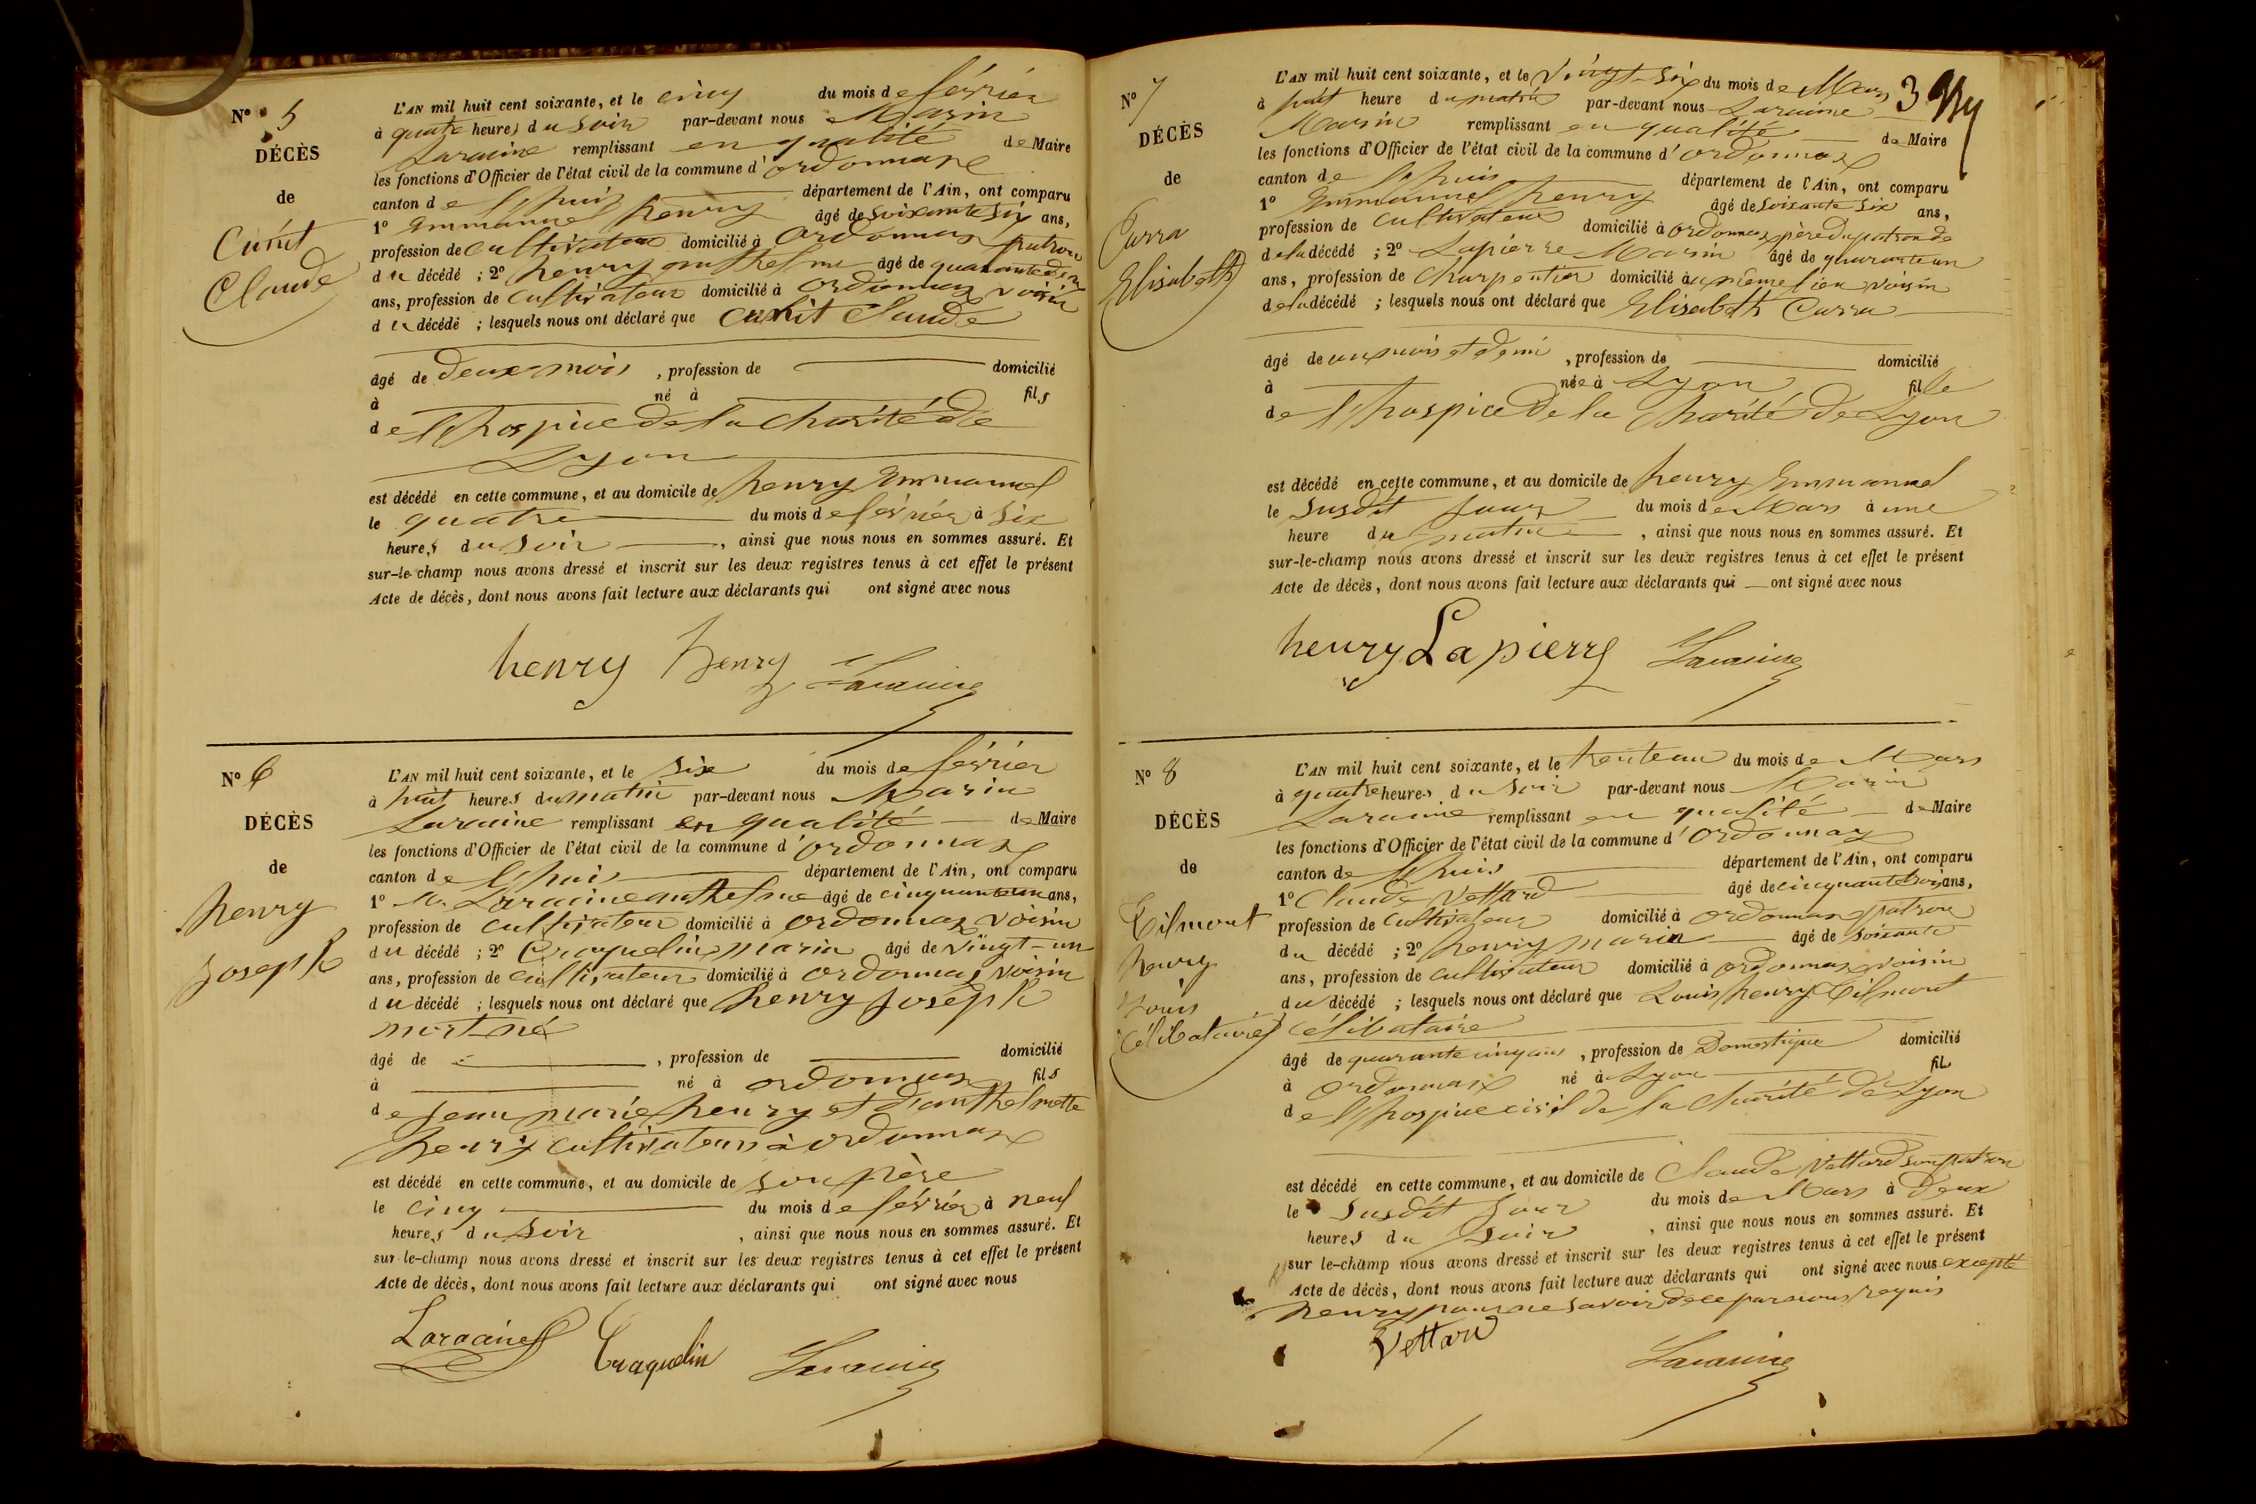 N° 5
DÉCÈS
de
Cunit
Claude
L'AN mil huit cent soixante, et le cinq du mois de février
à quatre heures du soir par-devant nous Marin
Laraine remplissant en qualité de Maire
les fonctions d'Officier de l'état civil de la commune d'ordonnax
canton de Lhuis département de l'Ain, ont comparu
1° Emmanuel henry âgé de soixante six ans,
profession de cultivateur domicilié à Ordonnax patron
du décédé ; 2° henry anthelme âgé de quarante deux
ans, profession de cultivateur domicilié à ordonnax voisin
du décédé ; lesquels nous ont déclaré que Cunit Claude
âgé de deux mois , profession de domicilié
à né à fils
de l'hospice de la charité de
Lyon
est décédé en cette commune, et au domicile de henry Emmanuel
le quatre du mois de février à six
heures du soir , ainsi que nous nous en sommes assuré. Et
sur-le-champ nous avons dressé et inscrit sur les deux registres tenus à cet effet le présent
Acte de décès, dont nous avons fait lecture aux déclarants qui ont signé avec nous
henry henry Laraine
N° 6
DÉCÈS
de
henry
Joseph
L'AN mil huit cent soixante, et le six du mois de février
à huit heures du matin par-devant nous Marin
Laraine remplissant en qualité de Maire
les fonctions d'Officier de l'état civil de la commune d'ordonnax
canton de Lhuis département de l'Ain, ont comparu
1° Laraine anthelme âgé de cinquante un ans,
profession de cultivateur domicilié à ordonnax voisin
du décédé ; 2° Craquelin marin âgé de vingt-un
ans, profession de cultivateur domicilié à ordonnax voisin
du décédé ; lesquels nous ont déclaré que henry Joseph
mort-né
âgé de , profession de domicilié
à né à ordonnax fils
de Jean marie henry et d'anthelmette
henry cultivateurs à ordonnax
est décédé en cette commune, et au domicile de son père
le cinq du mois de février à neuf
heures du soir , ainsi que nous nous en sommes assuré. Et
sur-le-champ nous avons dressé et inscrit sur les deux registres tenus à cet effet le présent
Acte de décès, dont nous avons fait lecture aux déclarants qui ont signé avec nous
Laraine Craquelin Laraine
3
N° 7
DÉCÈS
de
Curra
Elisabeth
L'AN mil huit cent soixante, et le vingt-six du mois de Mars
à huit heure du matin par-devant nous Laraine
Marin remplissant en qualité de Maire
les fonctions d'Officier de l'état civil de la commune d'ordonnax
canton de Lhuis département de l'Ain, ont comparu
1° Emmanuel henry âgé de soixante six ans,
profession de cultivateur domicilié à ordonnax père du patron de
de la décédé ; 2° Lapierre Marin âgé de quarante un
ans, profession de charpentier domicilié au même lieu voisin
de la décédé ; lesquels nous ont déclaré que Elisabeth Curra
âgé de un mois et demi , profession de domicilié
à née à Lyon fille
de l'hospice de la charité de Lyon
est décédé en cette commune, et au domicile de henry Emmanuel
le susdit jour du mois de Mars à une
heure du matin , ainsi que nous nous en sommes assuré. Et
sur-le-champ nous avons dressé et inscrit sur les deux registres tenus à cet effet le présent
Acte de décès, dont nous avons fait lecture aux déclarants qui ont signé avec nous
henry Lapierre Laraine
N° 8
DÉCÈS
de
Gilmont
henry
Louis
Célibataire
L'AN mil huit cent soixante, et le trente un du mois de Mars
à quatre heures du soir par-devant nous Marin
Laraine remplissant en qualité de Maire
les fonctions d'Officier de l'état civil de la commune d'ordonnax
canton de Lhuis département de l'Ain, ont comparu
1° Claude Vettard âgé de cinquante trois ans,
profession de cultivateur domicilié à ordonnax patron
du décédé ; 2° henry marin âgé de soixante
ans, profession de cultivateur domicilié à ordonnax voisin
du décédé ; lesquels nous ont déclaré que Louis henry Gilmont
célibataire
âgé de quarante cinq ans , profession de Domestique domicilié
à ordonnax né à Lyon fils
de l'hospice civil de la charité de Lyon
est décédé en cette commune, et au domicile de Claude Vettard son patron
le susdit jour du mois de Mars à Deux
heures du soir , ainsi que nous nous en sommes assuré. Et
sur le-champ nous avons dressé et inscrit sur les deux registres tenus à cet effet le présent
Acte de décès, dont nous avons fait lecture aux déclarants qui ont signé avec nous excepté
henry pour ne savoir de ce par nous requis
Vettard Laraine